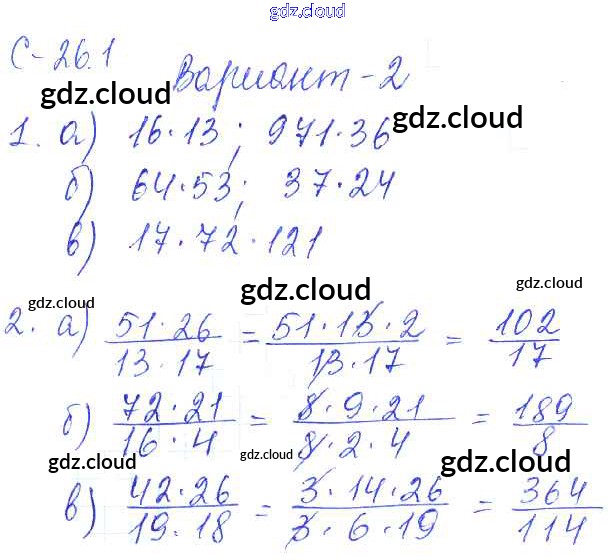 gdz.cloud
С-26.1 Вариант-2
gdz.cloud
gdz.cloud
1. а) 16·13; 971·36
б) 64·53; 37·24
в) 17·72·121
gdz.cloud
gdz.cloud
gdz.cloud
2. а) 51·26/13·17 = 51·13·2/13·17 = 102/17
б) 72·21/16·4 = 8·9·21/8·2·4 = 189/8
gdz.cloud
gdz.cloud
gdz.cloud
в) 42·26/19·18 = 3·14·26/3·6·19 = 364/114